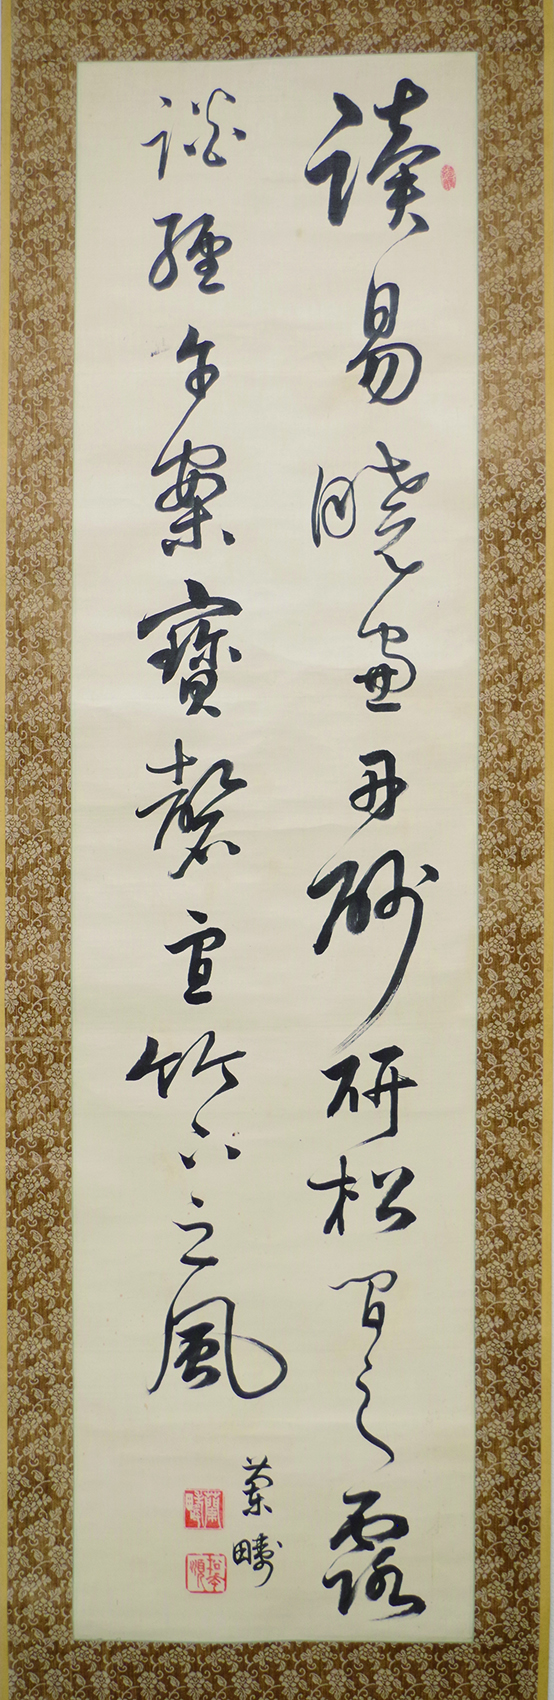 讀易曉窗丹砂研松間之露
談經午案寶磬宣竹下之風
蘭疇